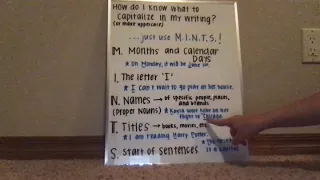 How do I know what to
capitalize in my writing?
(or make uppercase)
...just use M.I.N.T.S.!
M. Months and Calendar
Days
* On Monday, it will be June 1st.
I. The letter 'I'
* I can't wait to go play at her house.
N. Names → of specific people, places,
(proper nouns) and brands
* Kayla wore her on her
flight to Chicago
T. Titles → books, movies, etc.
* I am reading Harry Potter.
S. Start of Sentences
* The
is a capital